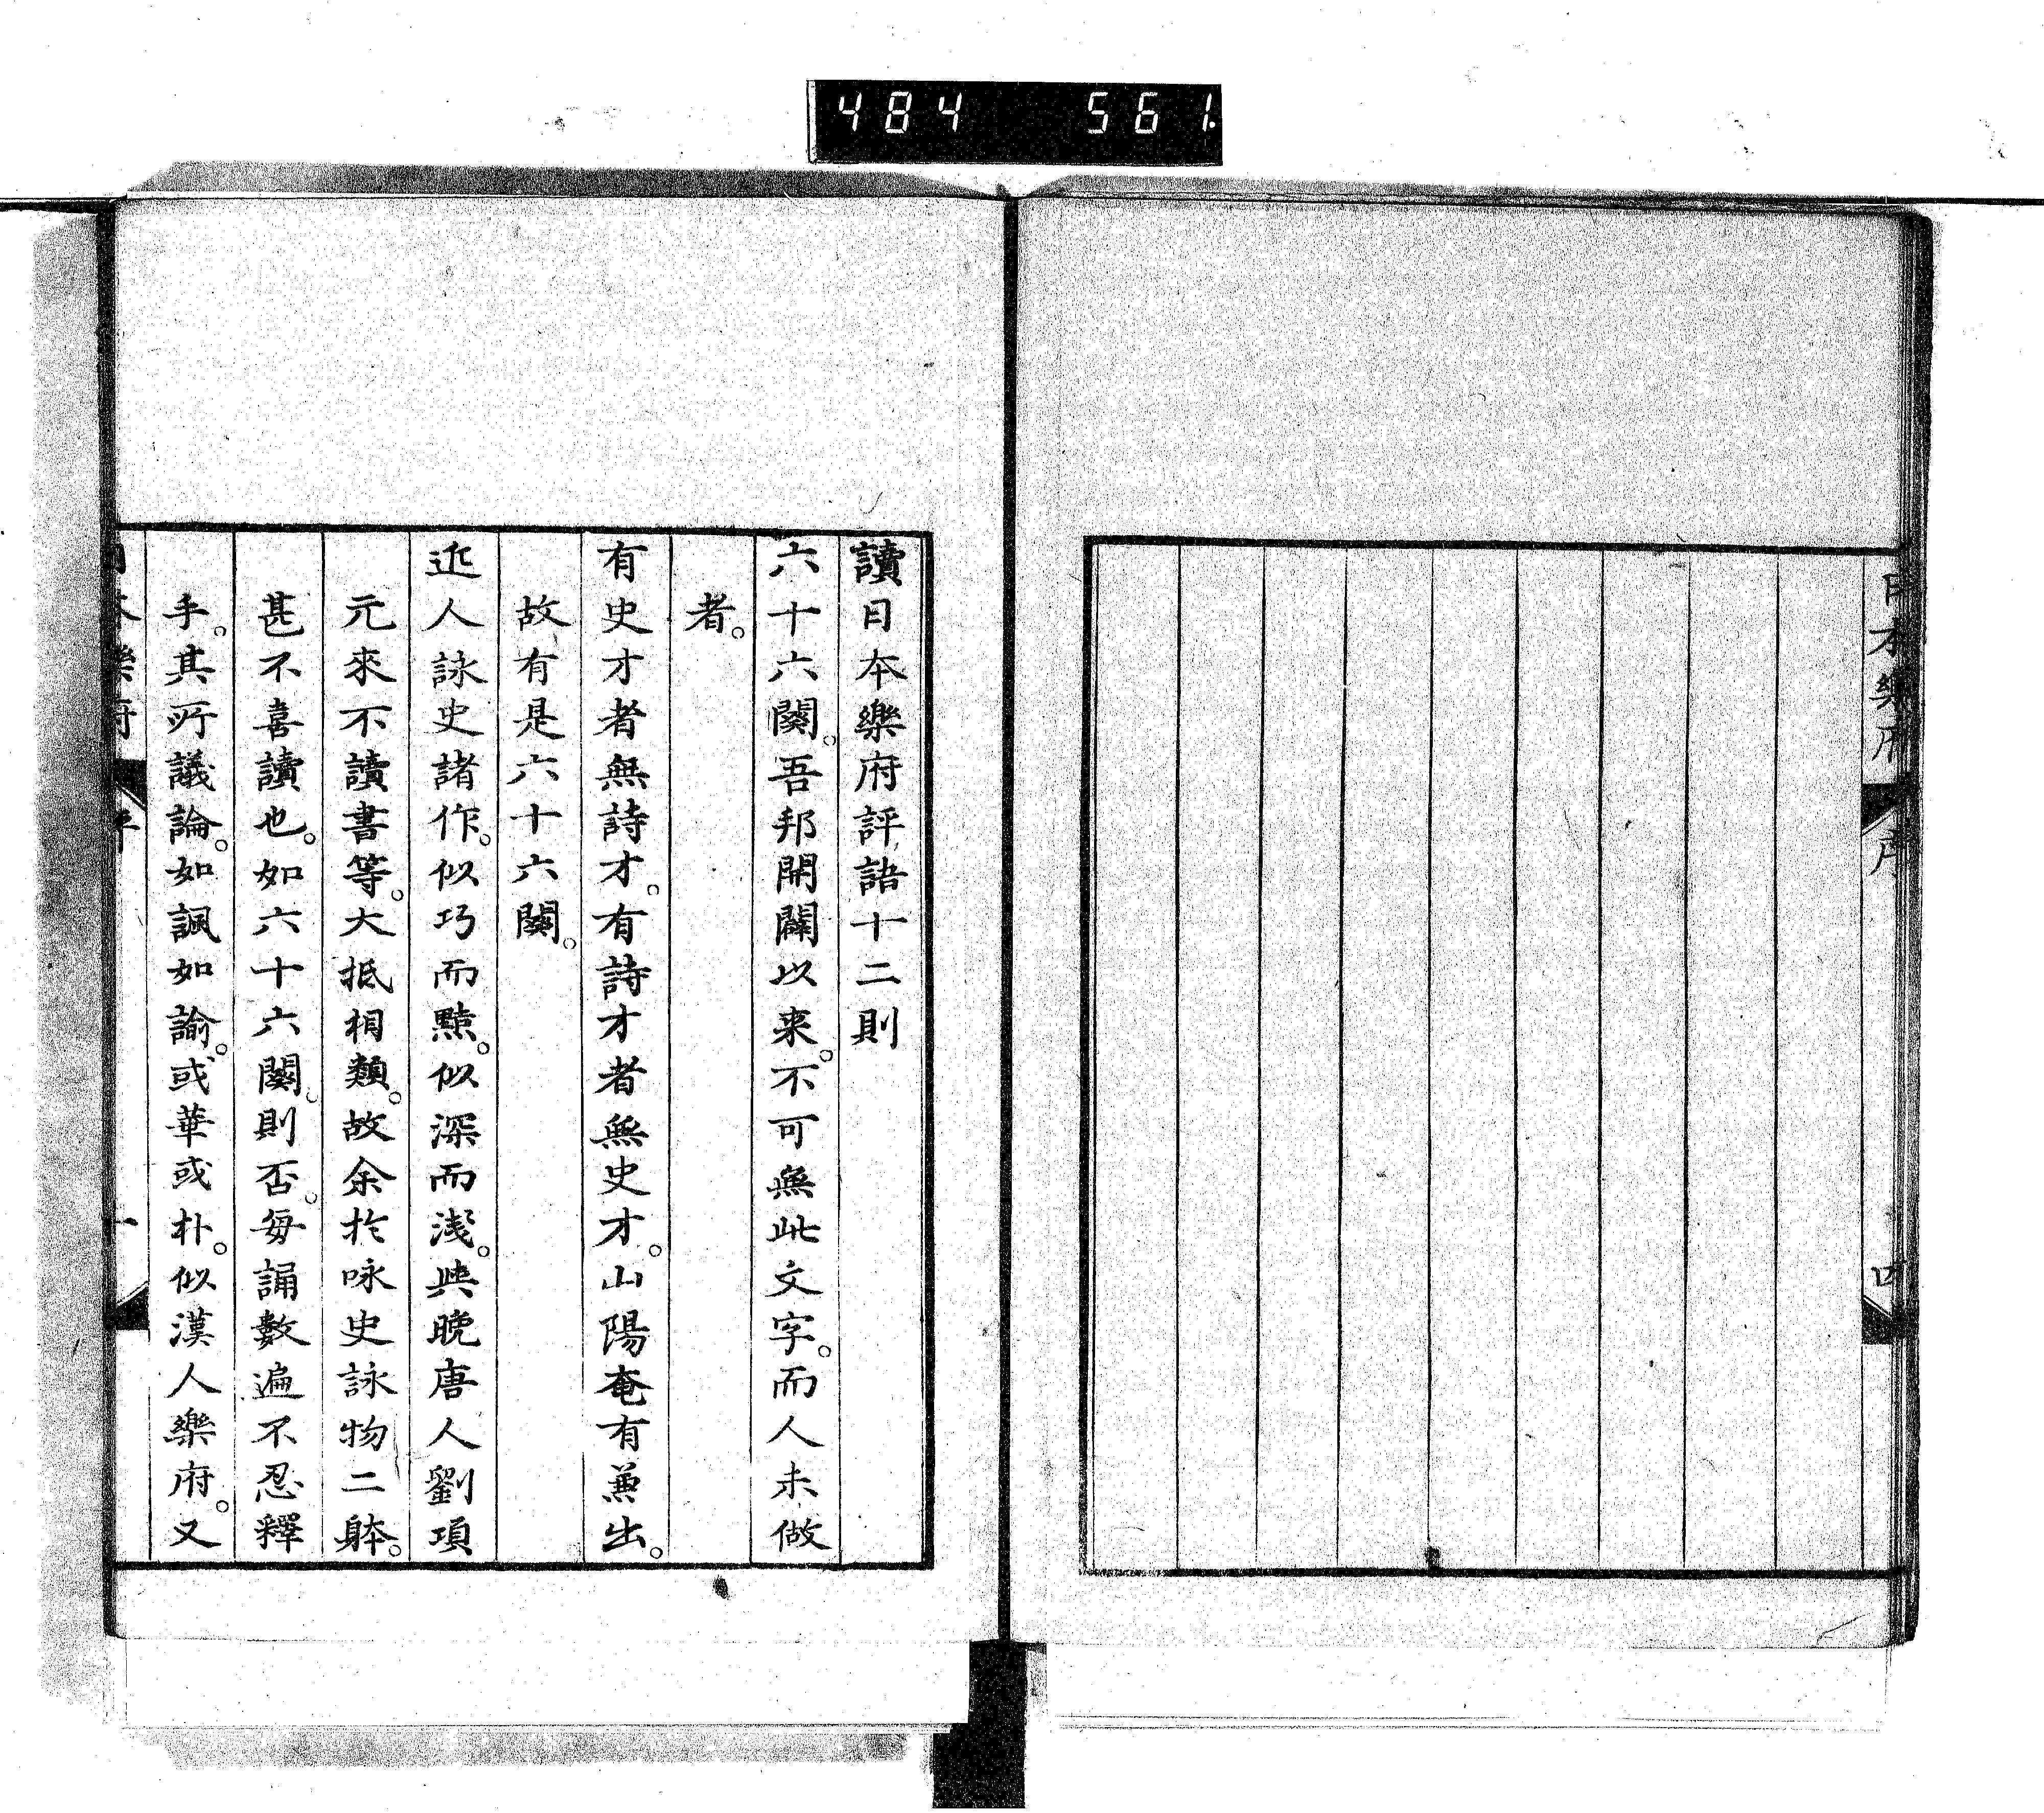 484 561
日本樂府 序 四
讀日本樂府評語十二則
六十六闋。吾邦開闢以来。不可無此文字。而人未做
者。
有史才者無詩才。有詩才者無史才。山陽奄有兼出。
故有是六十六闋。
近人詠史諸作。似巧而黠。似深而浅。與晚唐人劉項
元來不讀書等。大抵相類。故余於咏史詠物二躰。
甚不喜讀也。如六十六闋。則否。每誦數遍不忍釋
手。其所議論。如諷如諭。或華或朴。似漢人樂府。又
日本樂府 評 一